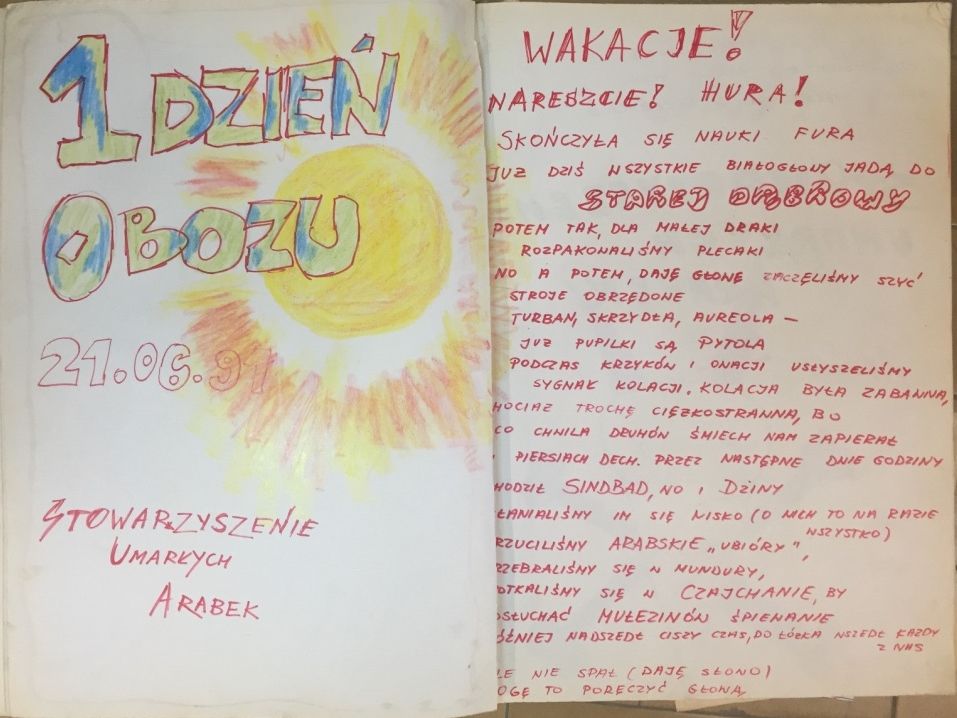 1 DZIEŃ
OBOZU
21.06.91
STOWARZYSZENIE
UMARŁYCH
ARABEK
WAKACJE!
NARESZCIE! HURA!
SKOŃCZYŁA SIĘ NAUKI FURA
JUŻ DZIŚ WSZYSTKIE BIAŁOGŁOWY JADĄ DO
STAREJ DĄBROWY
POTEM TAK, DLA MAŁEJ DRAKI
ROZPAKOWALIŚMY PLECAKI
NO A POTEM, DAJĘ GŁOWĘ ZACZĘLIŚMY SZYĆ
STROJE OBRZĘDOWE
TURBAN, SKRZYDŁA, AUREOLA –
JUŻ PUPILKI SĄ PYTOLA
PODCZAS KRZYKÓW I OWACJI USŁYSZELIŚMY
SYGNAŁ KOLACJI. KOLACJA BYŁA ZABAWNA,
HOCIAŻ TROCHĘ CIĘŻKOSTRAWNA, BO
CO CHWILA DRUHÓW ŚMIECH NAM ZAPIERAŁ
W PIERSIACH DECH. PRZEZ NASTĘPNE DWIE GODZINY
HODZIŁ SINDBAD, NO I DŻINY
ŁANIALIŚMY IM SIĘ NISKO (O NICH TO NA RAZIE
WSZYSTKO)
RZUCILIŚMY ARABSKIE „UBIÓRY",
RZEBRALIŚMY SIĘ W MUNDURY,
OTKALIŚMY SIĘ W CZAJCHANIE, BY
OSŁUCHAĆ MUŁEZINÓW ŚPIEWANIE
ÓŹNIEJ NADSZEDŁ CISZY CZAS, DO ŁÓŻKA WSZEDŁ KAŻDY
Z NAS
LE NIE SPAŁ (DAJĘ SŁOWO)
OGĘ TO PORĘCZYĆ GŁOWĄ,